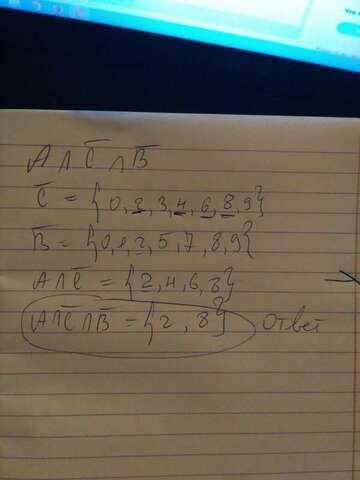 A∩C̅∩B̅
C̅ = {0,2,3,4,6,8,9}
B̅ = {0,1,2,5,7,8,9}
A∩C̅ = {2,4,6,8}
A∩C̅∩B̅ = {2,8} Ответ